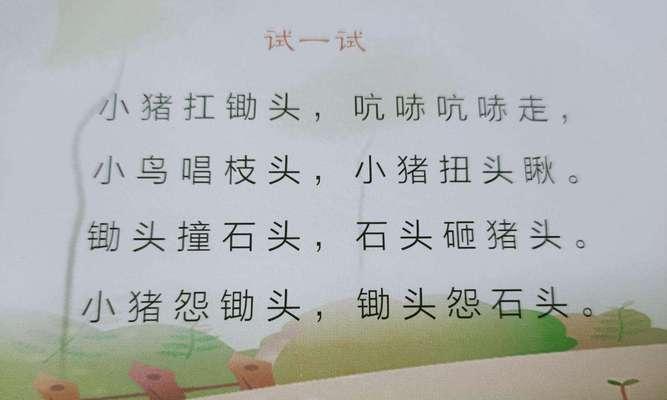 试一试
小猪扛锄头，吭哧吭哧走，
小鸟唱枝头，小猪扭头瞅。
锄头撞石头，石头砸猪头。
小猪怨锄头，锄头怨石头。